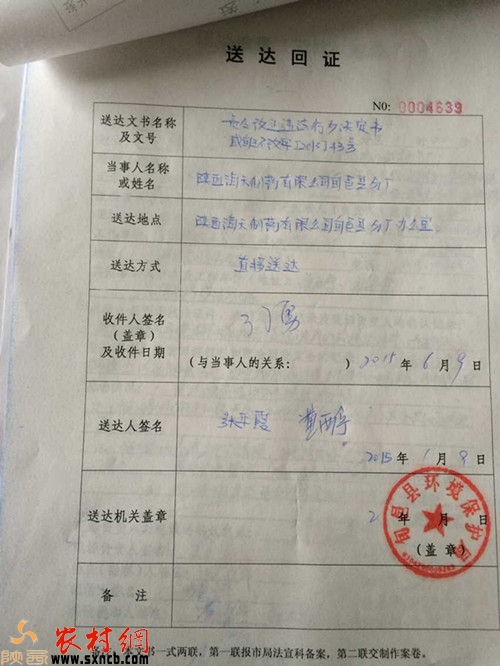 送达回证
N0: 0004639
送达文书名称
及文号
责令改正违法行为决定书
当事人名称
或姓名
陕西海天制药有限公司旬邑县分厂
送达地点
陕西海天制药有限公司旬邑县分厂办公室
送达方式
直接送达
收件人签名
(盖章)
及收件日期
(与当事人的关系: ) 2015 年 6 月 9 日
送达人签名
2015 年 月 9 日
送达机关盖章
2 年 月 日
(盖章)
旬邑县环境保护
备 注
备注：本文书一式两联，第一联报市局法宣科备案，第二联交制作案卷。
陕西农村网
www.sxncb.com